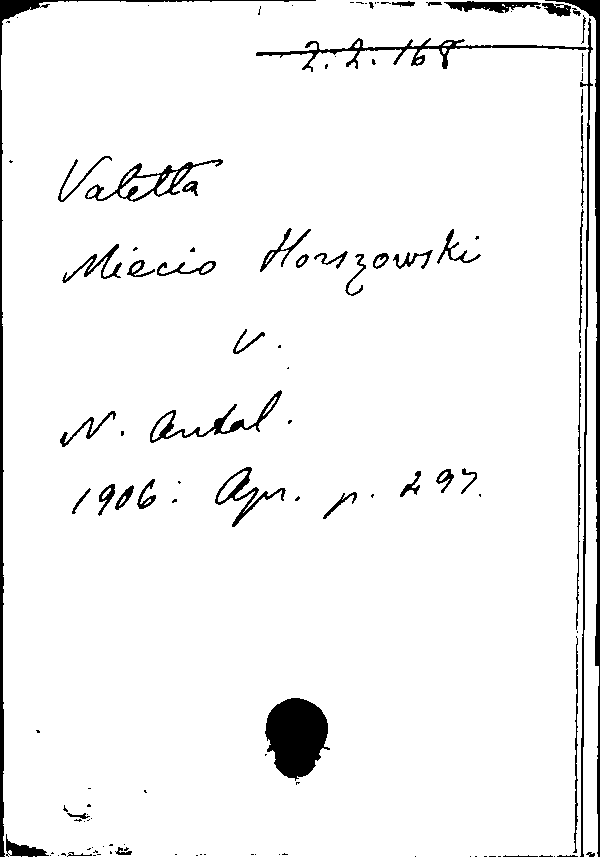 2.2.168
Valetta
Miecio Horszowski
V.
N. Antol.
1906: Apr. p. 297.